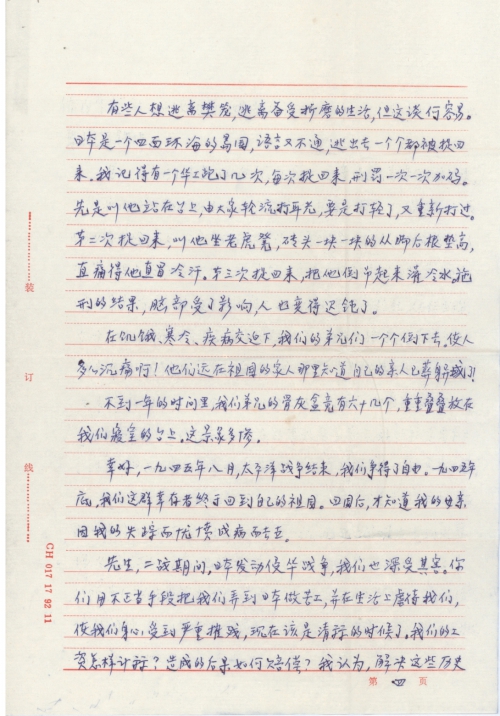 有些人想逃离樊笼,逃离备受折磨的生活,但这谈何容易。
日本是一个四面环海的岛国,语言又不通,逃出去一个个都被捉回
来。我记得有一个华工跑了几次,每次捉回来,刑罚一次一次加码。
先是叫他站在台上,由大家轮流打耳光,要是打轻了,又重新打过。
第二次捉回来,叫他坐老虎凳,砖头一块一块的从脚后根垫高,
直痛得他直冒冷汗。第三次捉回来,把他倒吊起来灌冷水。施
刑的结果,脑部受了影响,人也变得迟钝了。
在饥饿、寒冷、疾病交迫下,我们的弟兄们一个个倒下去。使人
多么沉痛啊!他们远在祖国的家人那里知道自己的亲人已葬身
不到一年的时间里,我们弟兄的骨灰盒竟有六十几个,重重叠叠放在
我们寝室的台上。这景象多惨。
幸好,一九四五年八月,太平洋战争结束,我们争得了自由。一九四五年
底,我们这群幸存者终于回到自己的祖国。回国后,才知道我的母亲
因我的失踪而忧愤成病而去世。
先生,二战期间,日本发动侵华战争,我们也深受其害。你
们用不正当手段把我们弄到日本做苦工,并在生活上虐待我们,
使我们身心受到严重摧残,现在该是清算的时候了,我们的工
资怎样计算?造成的后果如何赔偿?我认为,解决这些历史
第 四 页
装
订
线
CH 017 17 92 11